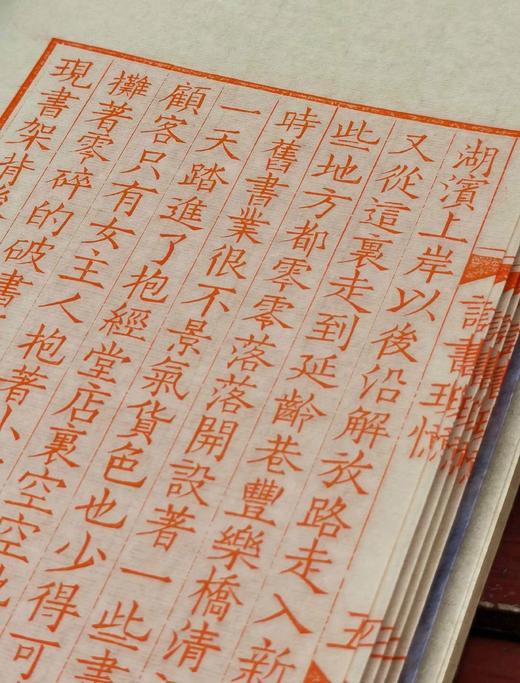 湖濱上岸以後沿解放路走入新
又從這裏走到延齡巷豐樂橋清
些地方都零零落落開設著一些書
時舊書業很不景氣貨色也少得可
一天踏進了抱經堂店裏空空地
顧客只有女主人抱著小
攤著零碎的破書
現書架背後
訪書瑣憶
五